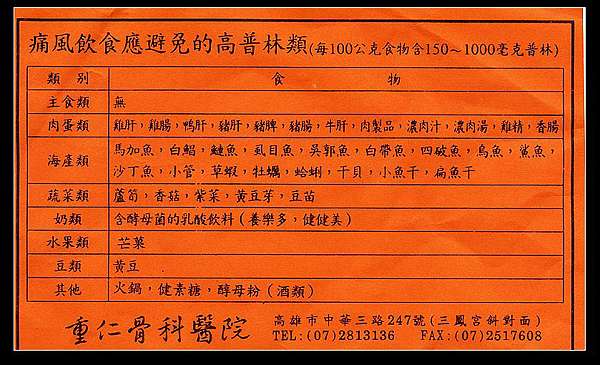 痛風飲食應避免的高普林類(每100公克食物含150～1000毫克普林)
類別 食物
主食類 無
肉蛋類 雞肝，雞腸，鴨肝，豬肝，豬脾，豬腸，牛肝，肉製品，濃肉汁，濃肉湯，雞精，香腸
海產類 馬加魚，白鯧，鰱魚，虱目魚，吳郭魚，白帶魚，四破魚，烏魚，鯊魚，
沙丁魚，小管，草蝦，牡蠣，蛤蜊，干貝，小魚干，扁魚干
蔬菜類 蘆筍，香菇，紫菜，黃豆芽，豆苗
奶類 含酵母菌的乳酸飲料(養樂多，健健美)
水果類 芒菓
豆類 黃豆
其他 火鍋，健素糖，醇母粉(酒類)
重仁骨科醫院
高雄市中華三路247號(三鳳宮斜對面)
TEL:(07)2813136 FAX:(07)2517608